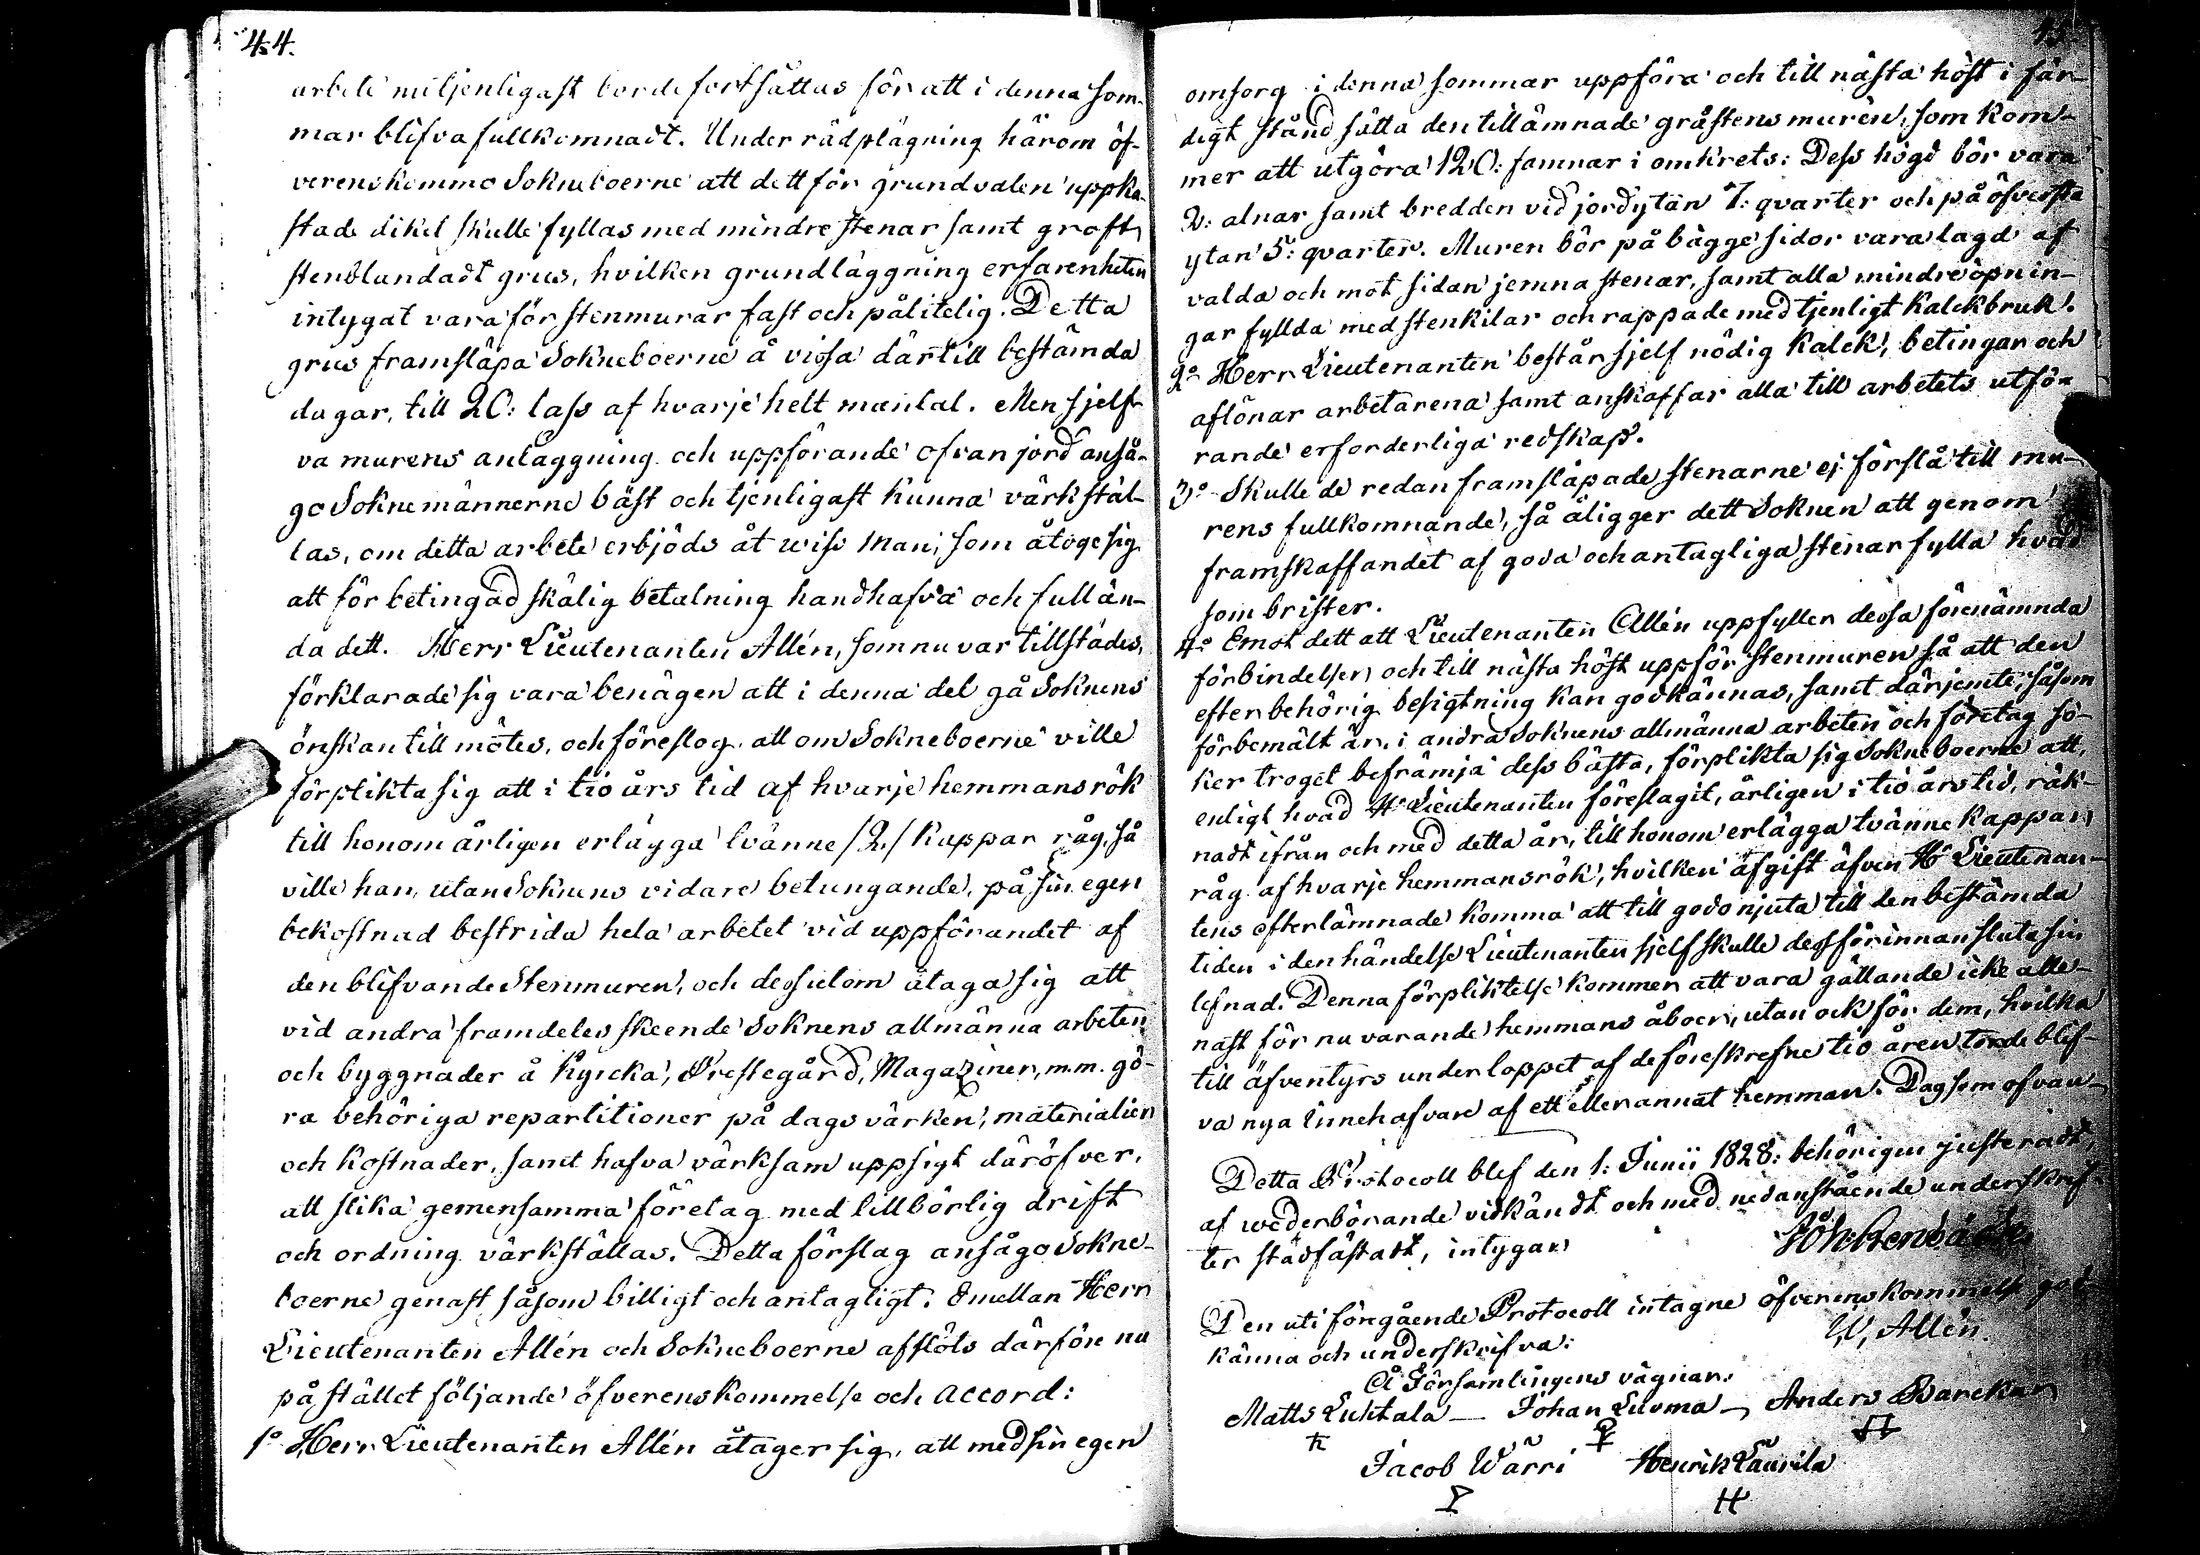 44.
arbete miljenligast borde fortsättas för att i denna som-
mar blifva fullkomnadt. Under rådplägning härom öf-
verenskommo Sokneboerne att dett för grundvalen uppka-
stade diket skulle fyllas med mindre stenar samt groft
stenblandadt grus, hvilken grundläggning erfarenheten
intygat vara för stenmurar fast och pålitelig. Detta
grus framsläpa Sokneboerne å vissa därtill bestämda
dagar, till 20: lass af hvarje helt mantal. Men sjelf-
va murens anläggning och uppförande ofvan jord anså-
go Soknemännerne bäst och tjenligast kunna värkstäl-
las, om detta arbete erbjöds åt wiss man, som åtoge sig
att för betingad skälig betalning handhafva och fullän-
da dett. Herr Lieutenanten Allén, som nu var tillstädes,
förklarade sig vara benägen att i denna del gå Soknens
önskan till mötes, och föreslog, att om Sokneboerne ville
förplikta sig att i tio års tid af hvarje hemmansrök
till honom årligen erlägga tvänne /2/ kappar råg, så
ville han, utan Soknens vidare betungande, på sin egen
bekostnad bestrida hela arbetet vid uppförandet af
den blifvande Stenmuren, och dessutom åtaga sig att
vid andra framdeles skeende Soknens allmänna arbeten
och byggnader å Kyrcka, Prestegård, Magaziner, m.m. gö-
ra behöriga repartitioner på dagsvärken, materialier
och kostnader, samt hafva värksam uppsigt däröfver,
att slika gemensamma företag med tillbörlig drift
och ordning värkställas. Detta förslag ansågo Sokne-
boerne genast såsom billigt och antagligt. Emellan Herr
Lieutenanten Allén och Sokneboerne afslöts därföre nu
på stället följande öfverenskommelse och accord:
1° Herr Lieutenanten Allén åtager sig, att med sin egen
omsorg i denna sommar uppföra och till nästa höst i fär-
digt stånd sätta den tillämnade gråstensmuren, som kom-
mer att utgöra 120: famnar i omkrets: Dess högd bör vara
2: alnar samt bredden vid jordytan 7: qvarter och på öfversta
ytan 5: qvarter. Muren bör på bägge sidor vara lagd af
valda och mot sidan jemna stenar, samt alla mindre öpnin-
gar fyllda med stenkilar och rappade med tjenligt Kalckbruk.
2° Herr Lieutenanten består sjelf nödig Kalck, betingar och
aflönar arbetarena samt anskaffar alla till arbetets utfö-
rande erforderliga redskap.
3° Skulle de redan framsläpade stenarne ej förslå till mu-
rens fullkomnande, så åligger dett Soknen att genom
framskaffandet af goda och antagliga stenar fylla hvad
som brister.
4° Emot dett att Lieutenanten Allén uppfyller dessa förenämnda
förbindelser och till nästa höst uppför stenmuren så att den
efter behörig besigtning kan godkännas, samt därjemte, såsom
förbemält är, i andra Soknens allmänna arbeten och företag sö-
ker troget befrämja dess bästa, förplikta sig Sokneboerne att,
enligt hvad Hr Lieutenanten föreslagit, årligen i tio års tid, räk-
nadt ifrån och med detta år, till honom erlägga tvänne kappar
råg af hvarje hemmansrök, hvilken afgift äfven Hr Lieutenan-
tens efterlämnade komma att till godo njuta till den bestämda
tiden i den händelse Lieutenanten sjelf skulle dessförinnan sluta sin
lefnad. Denna förpliktelse kommer att vara gällande icke alle-
nast för nu varande hemmans åboer, utan ock för dem, hvilka
till äfventyrs under loppet af de föreskrefne tio åren torde blif-
va nya innehafvare af ett eller annat hemman. Dag som ofvan
Detta Protocoll blef den 1: Junii 1828: behörigen justeradt,
af wederbörande vidkändt och med nedanstående underskrif-
ter stadfästadt, intygar
Den uti föregående Protocoll intagne öfverenskommelse god-
känna och underskrifva:
W, Allén.
Å Församlingens vägnar:
Matts Luhtala — Johan Luoma — Anders Barckar
Jacob Wärri Henrik Laurila
H